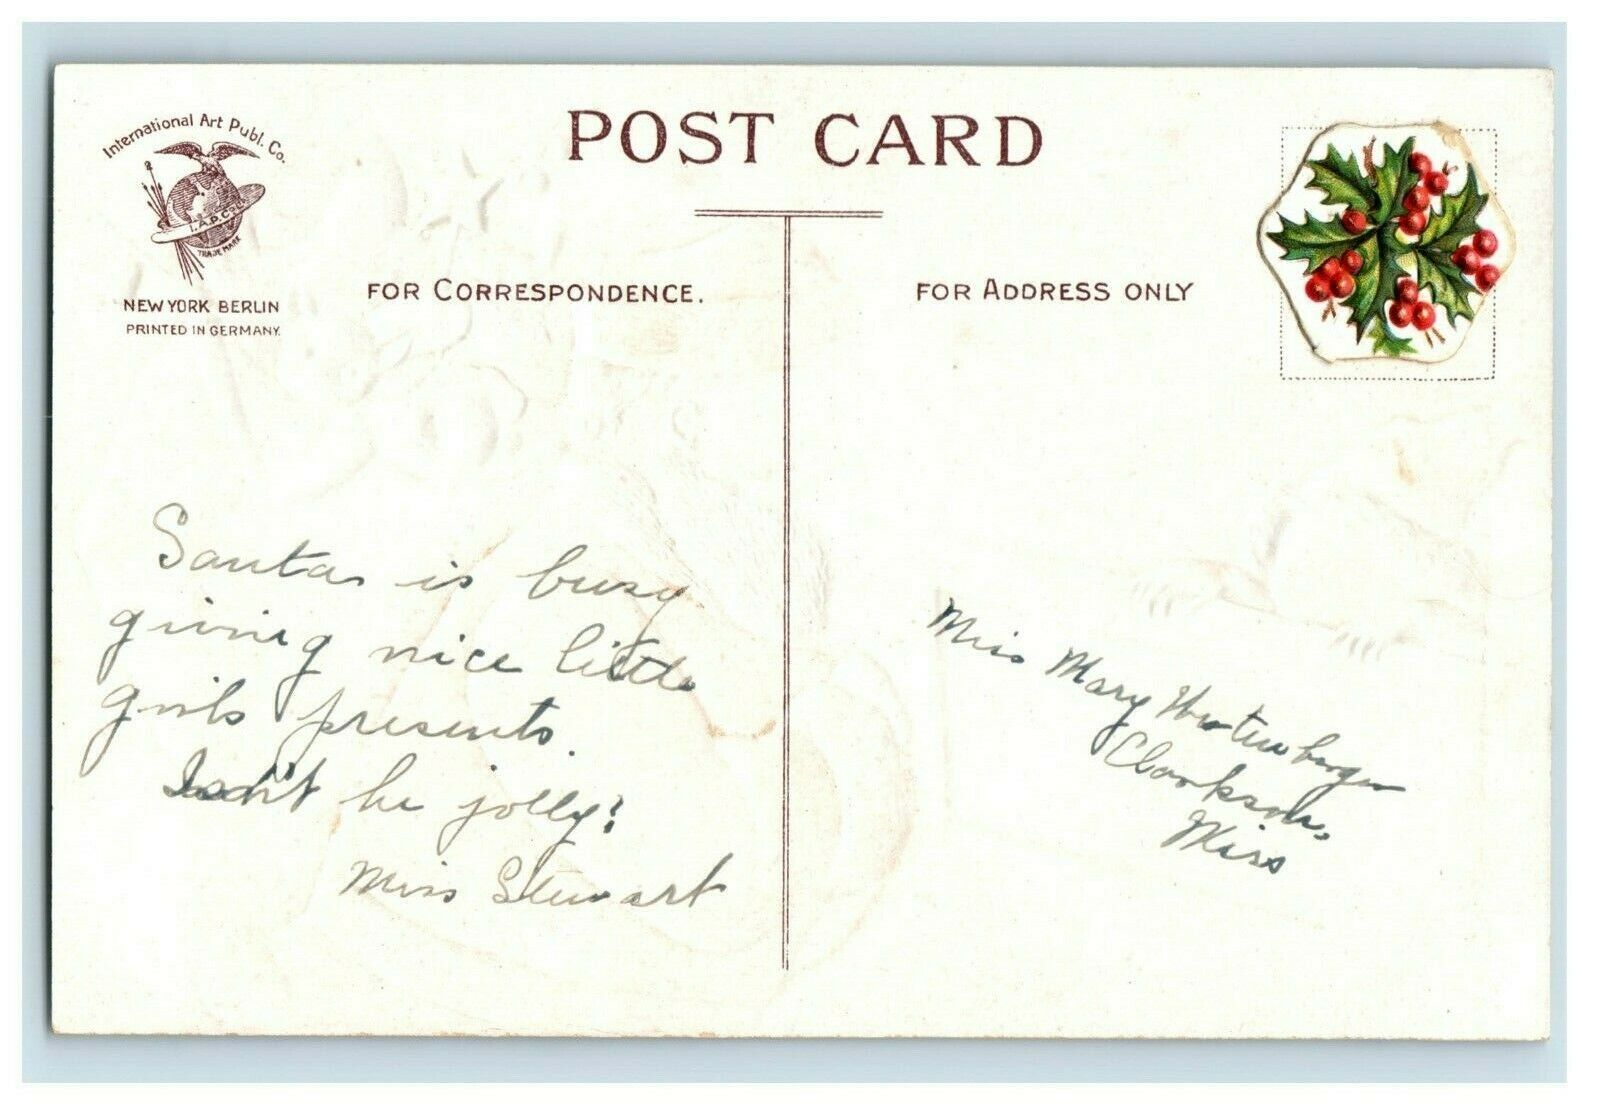 International Art Publ. Co.
I.A.P.Co.
TRADE MARK
NEW YORK BERLIN
PRINTED IN GERMANY.
POST CARD
FOR CORRESPONDENCE.
FOR ADDRESS ONLY
Santa is busy
giving nice little
girls presents.
Isn't he jolly?
Miss Stewart
Miss Mary
Clarkson,
Miss